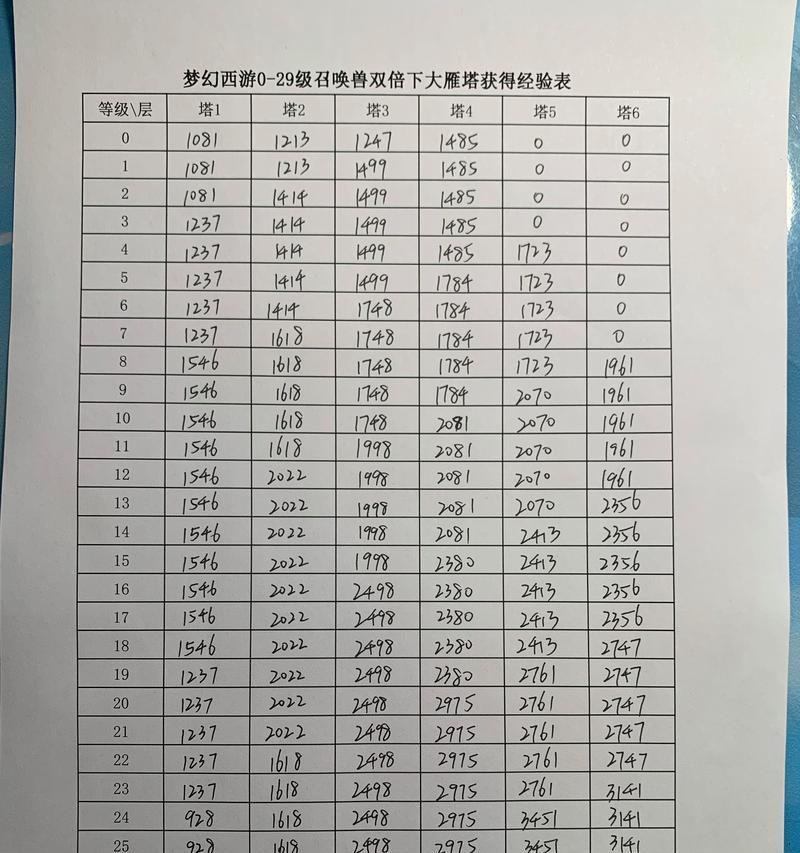 梦幻西游0-29级召唤兽双倍下大雁塔获得经验表
等级\层 塔1 塔2 塔3 塔4 塔5 塔6
0 1081 1213 1247 1485 0 0
1 1081 1213 1499 1485 0 0
2 1081 1414 1499 1485 0 0
3 1237 1414 1499 1485 0 0
4 1237 1414 1499 1485 1723 0
5 1237 1414 1499 1784 1723 0
6 1237 1414 1748 1784 1723 0
7 1237 1618 1748 1784 1723 0
8 1546 1618 1748 1784 1723 1961
9 1546 1618 1748 1784 2070 1961
10 1546 1618 1748 2081 2070 1961
11 1546 1618 1998 2081 2070 1961
12 1546 2022 1998 2081 2070 1961
13 1546 2022 1998 2081 2070 2356
14 1546 2022 1998 2081 2413 2356
15 1546 2022 1998 2380 2413 2356
16 1546 2022 2498 2380 2413 2356
17 1546 2022 2498 2380 2413 2356
18 1546 2022 2498 2380 2413 2747
19 1237 2022 2498 2380 2761 2747
20 1237 2022 2498 2975 2761 2747
21 1237 2022 2498 2975 2761 2747
22 1237 1618 2498 2975 2761 2747
23 1237 1618 2498 2975 2761 3141
24 928 1618 2498 2975 3451 3141
25 928 1618 2498 2975 3451 3141